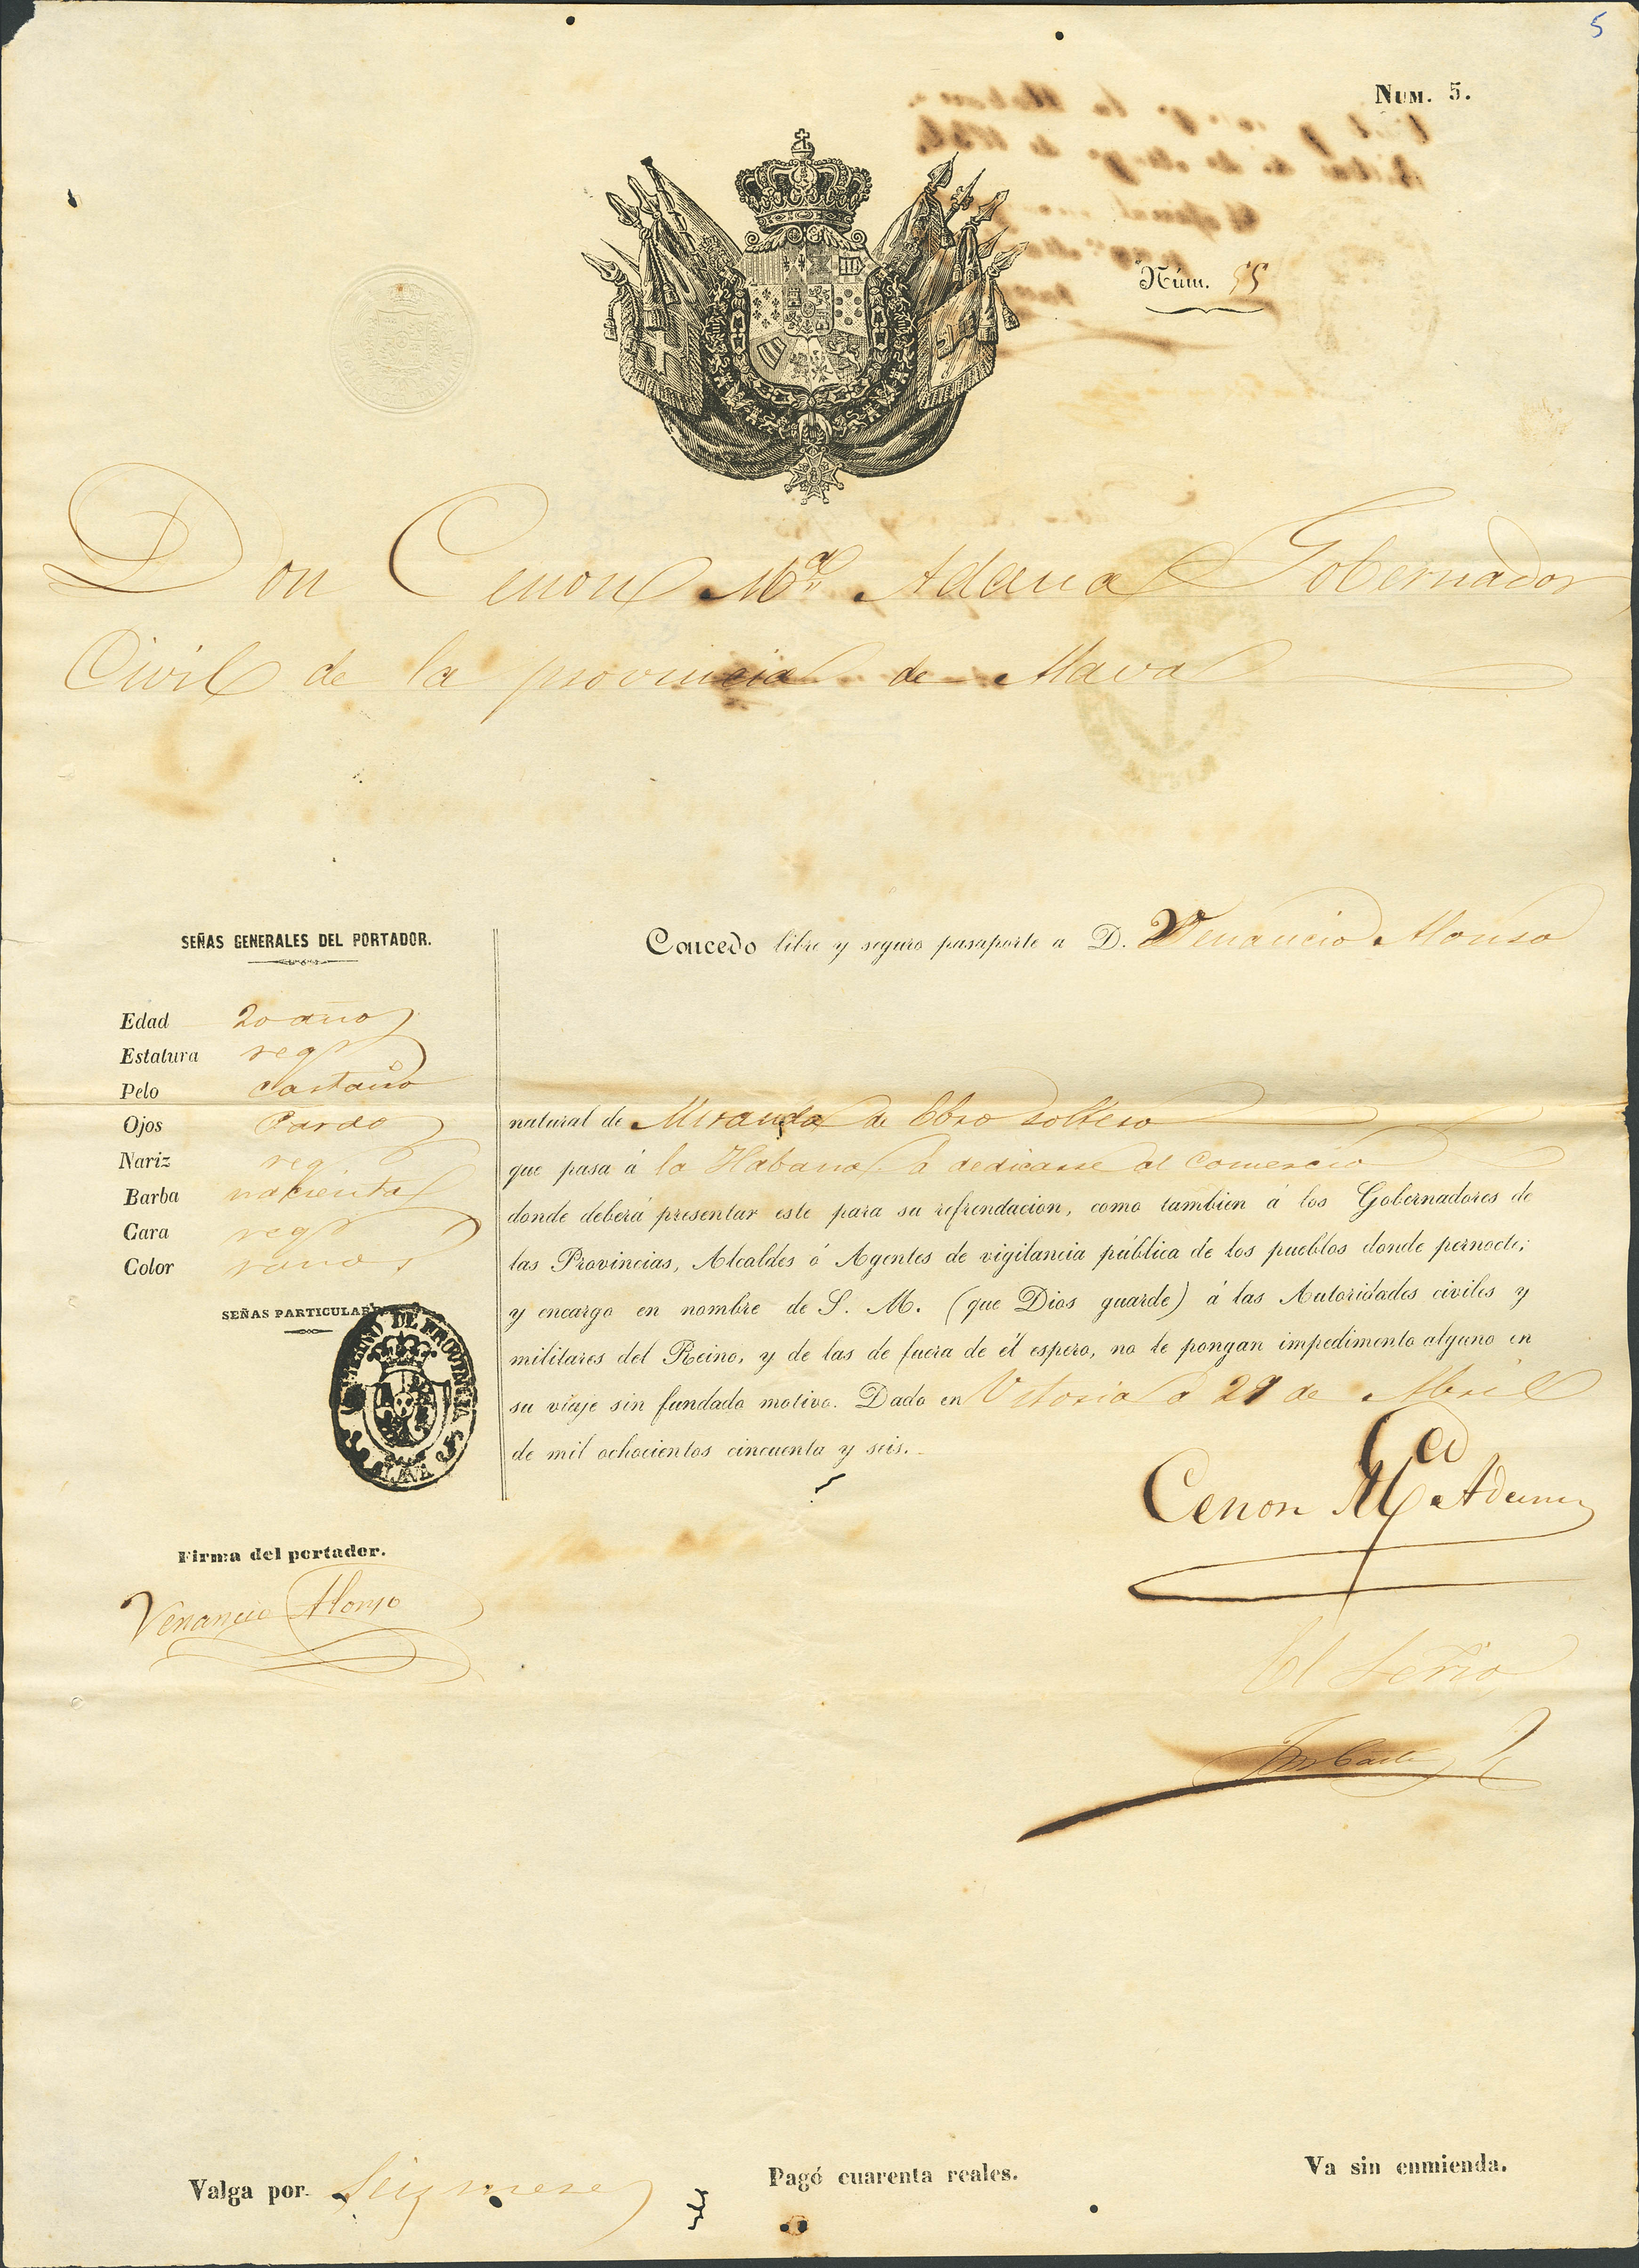 5
Num. 5.
Núm. 55
Don Cenon M.ª Adana Gobernador
Civil de la provincia de Alava
SEÑAS GENERALES DEL PORTADOR.
Concedo libre y seguro pasaporte a D. Venancio Alonso
Edad 20 años
Estatura reg.r
Pelo castaño
Ojos Pardos
Nariz reg.
Barba naciente
Cara reg.r
Color sano
natural de Miranda de Ebro soltero
que pasa á la Habana á dedicarse al Comercio
donde deberá presentar este para su refrendacion, como tambien á los Gobernadores de
las Provincias, Alcaldes ó Agentes de vigilancia pública de los pueblos donde pernocte;
y encargo en nombre de S. M. (que Dios guarde) á las Autoridades civiles y
militares del Reino, y de las de fuera de él espero, no le pongan impedimento alguno en
su viaje sin fundado motivo. Dado en Vitoria á 29 de Abril
de mil ochocientos cincuenta y seis.
SEÑAS PARTICULARES
GOBIERNO DE PROVINCIA
ALAVA
Cenon M.ª Adana
Firma del portador.
Venancio Alonso
El Serio,
Valga por Seis meses
Pagó cuarenta reales.
Va sin enmienda.